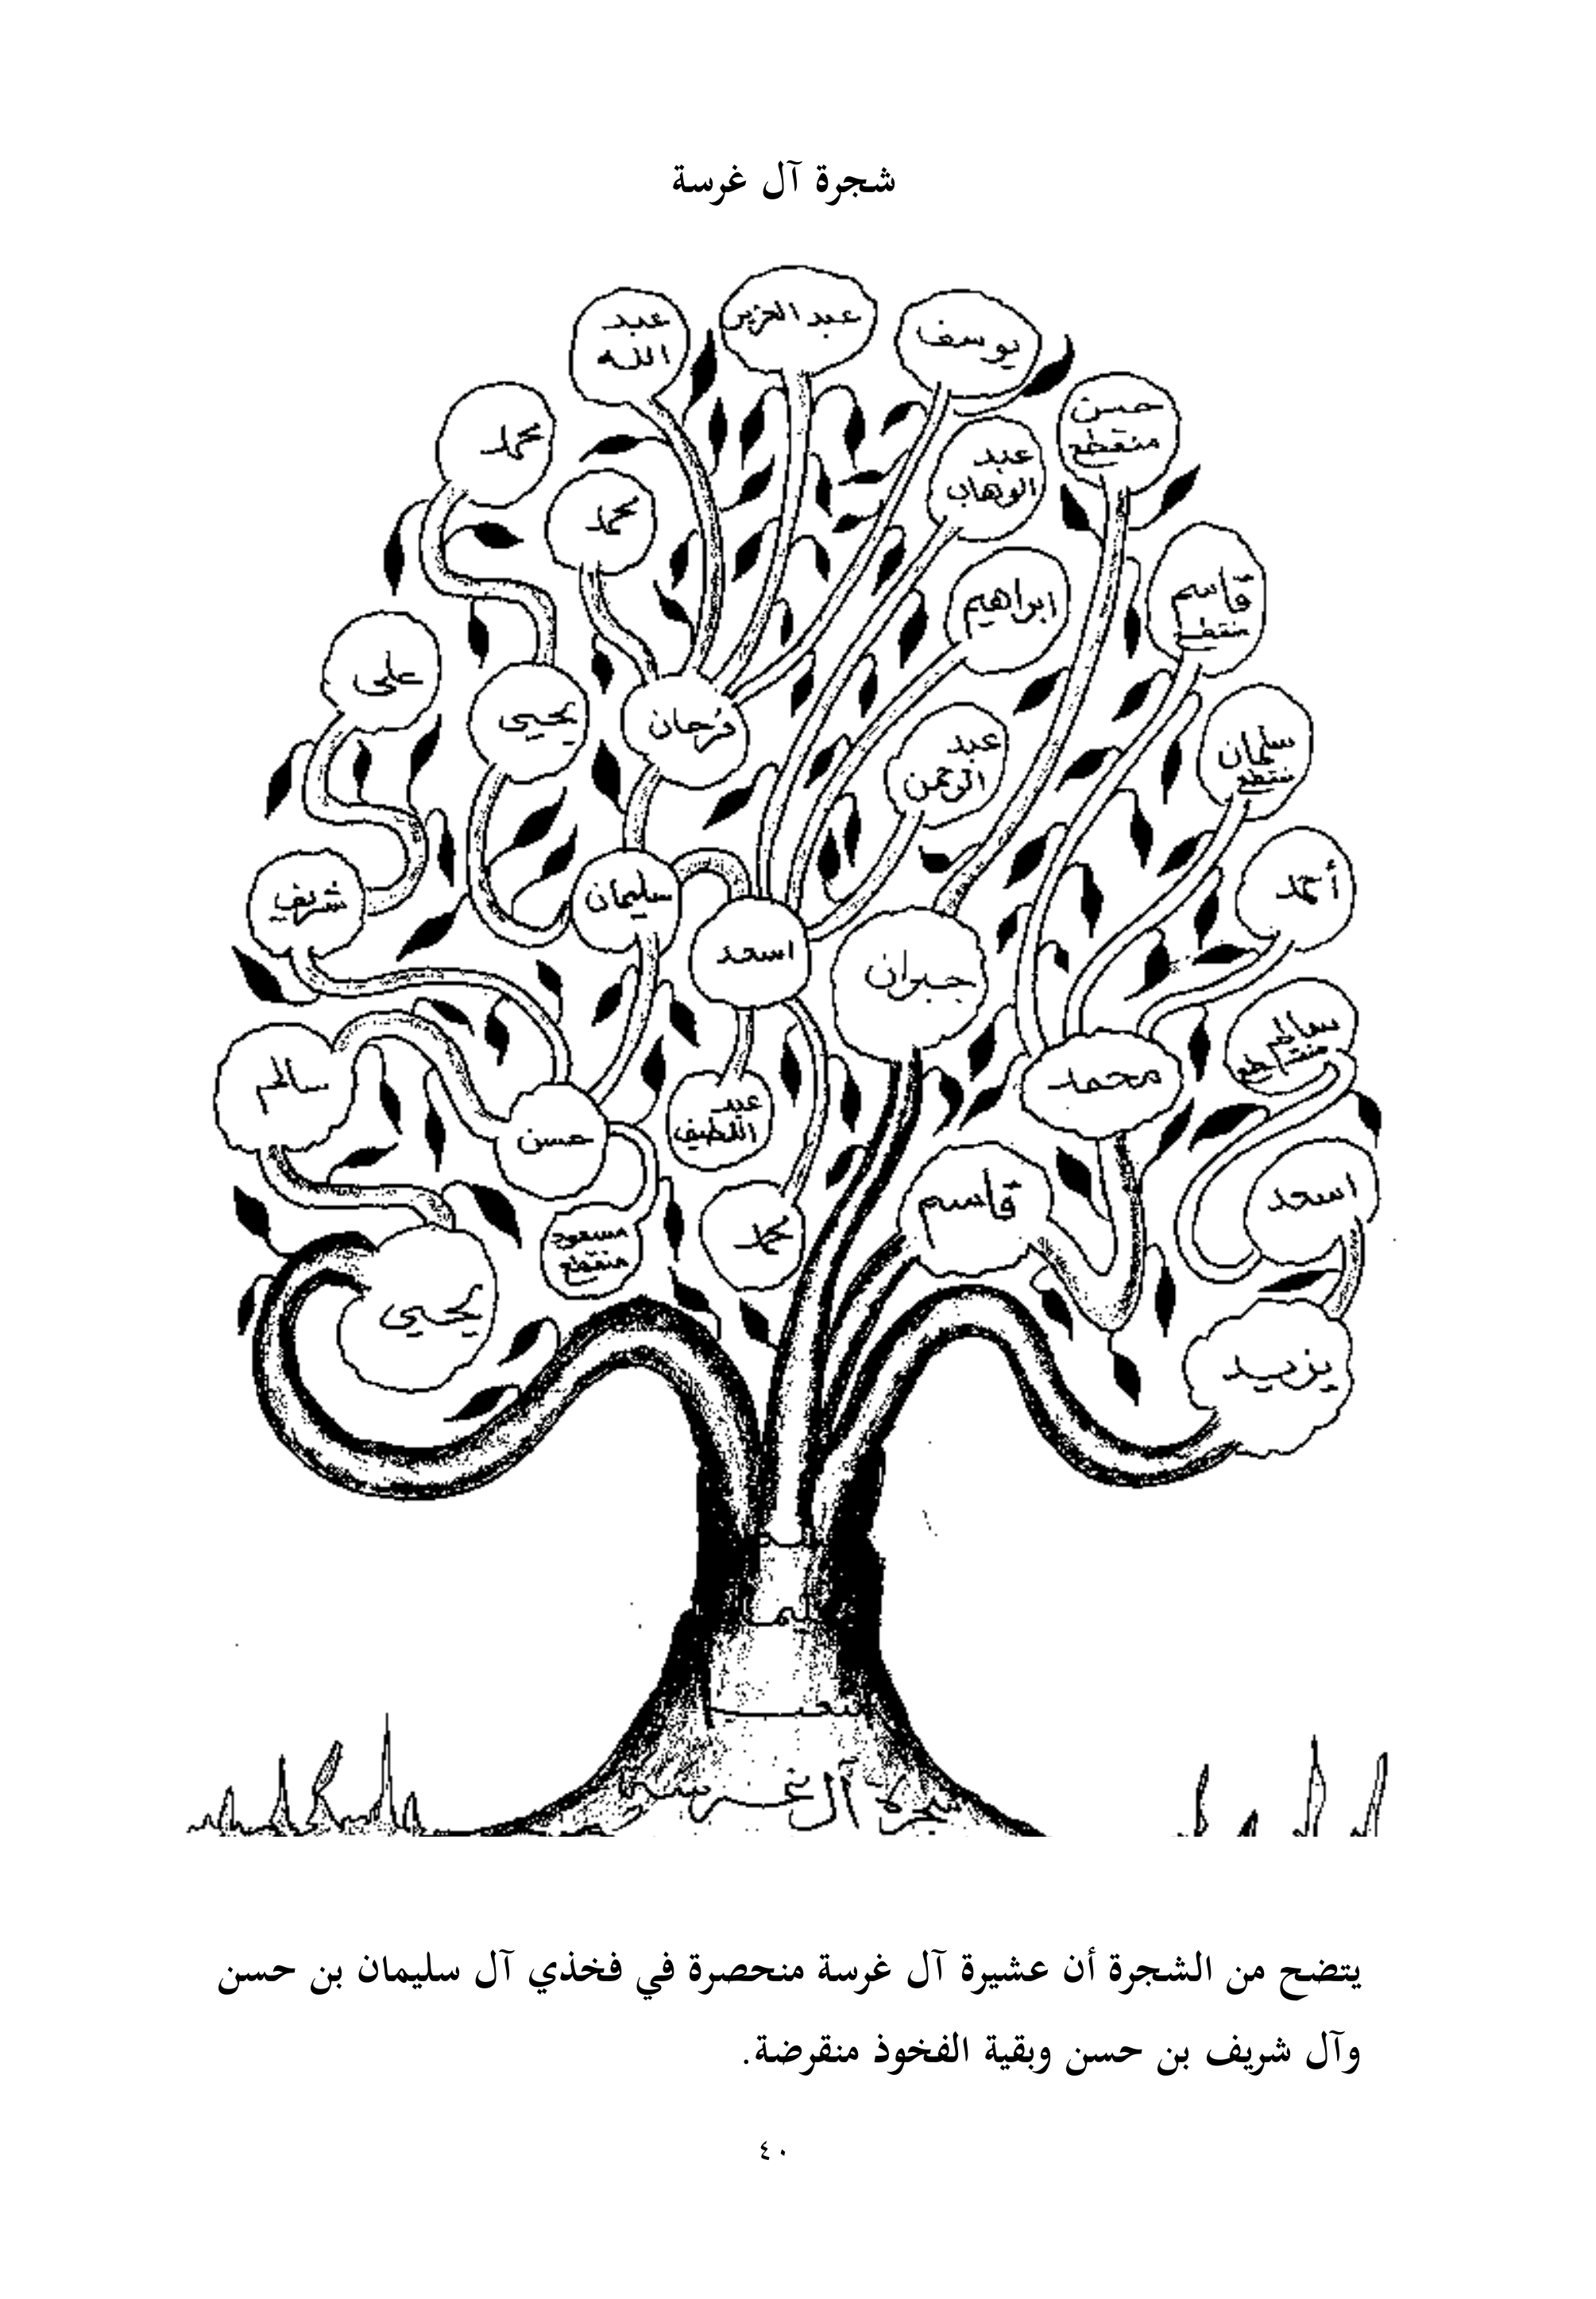 شجرة آل غرسة
عبد العزيز
عبد
الله
يوسف
حسن
منقطع
محمد
عبد
الوهاب
محمد
ابراهيم
قاسم
منقطع
على
يحيى
فرحان
عبد
الرحمن
سلمان
منقطع
شريف
سليمان
اسعد
جبران
أحمد
سالم
منقطع
سالم
حسن
عبد
اللطيف
محمد
مسعود
منقطع
محمد
قاسم
اسعد
يحيى
يزيد
شجرة آل غرسة
يتضح من الشجرة أن عشيرة آل غرسة منحصرة في فخذي آل سليمان بن حسن
وآل شريف بن حسن وبقية الفخوذ منقرضة.
٤٠